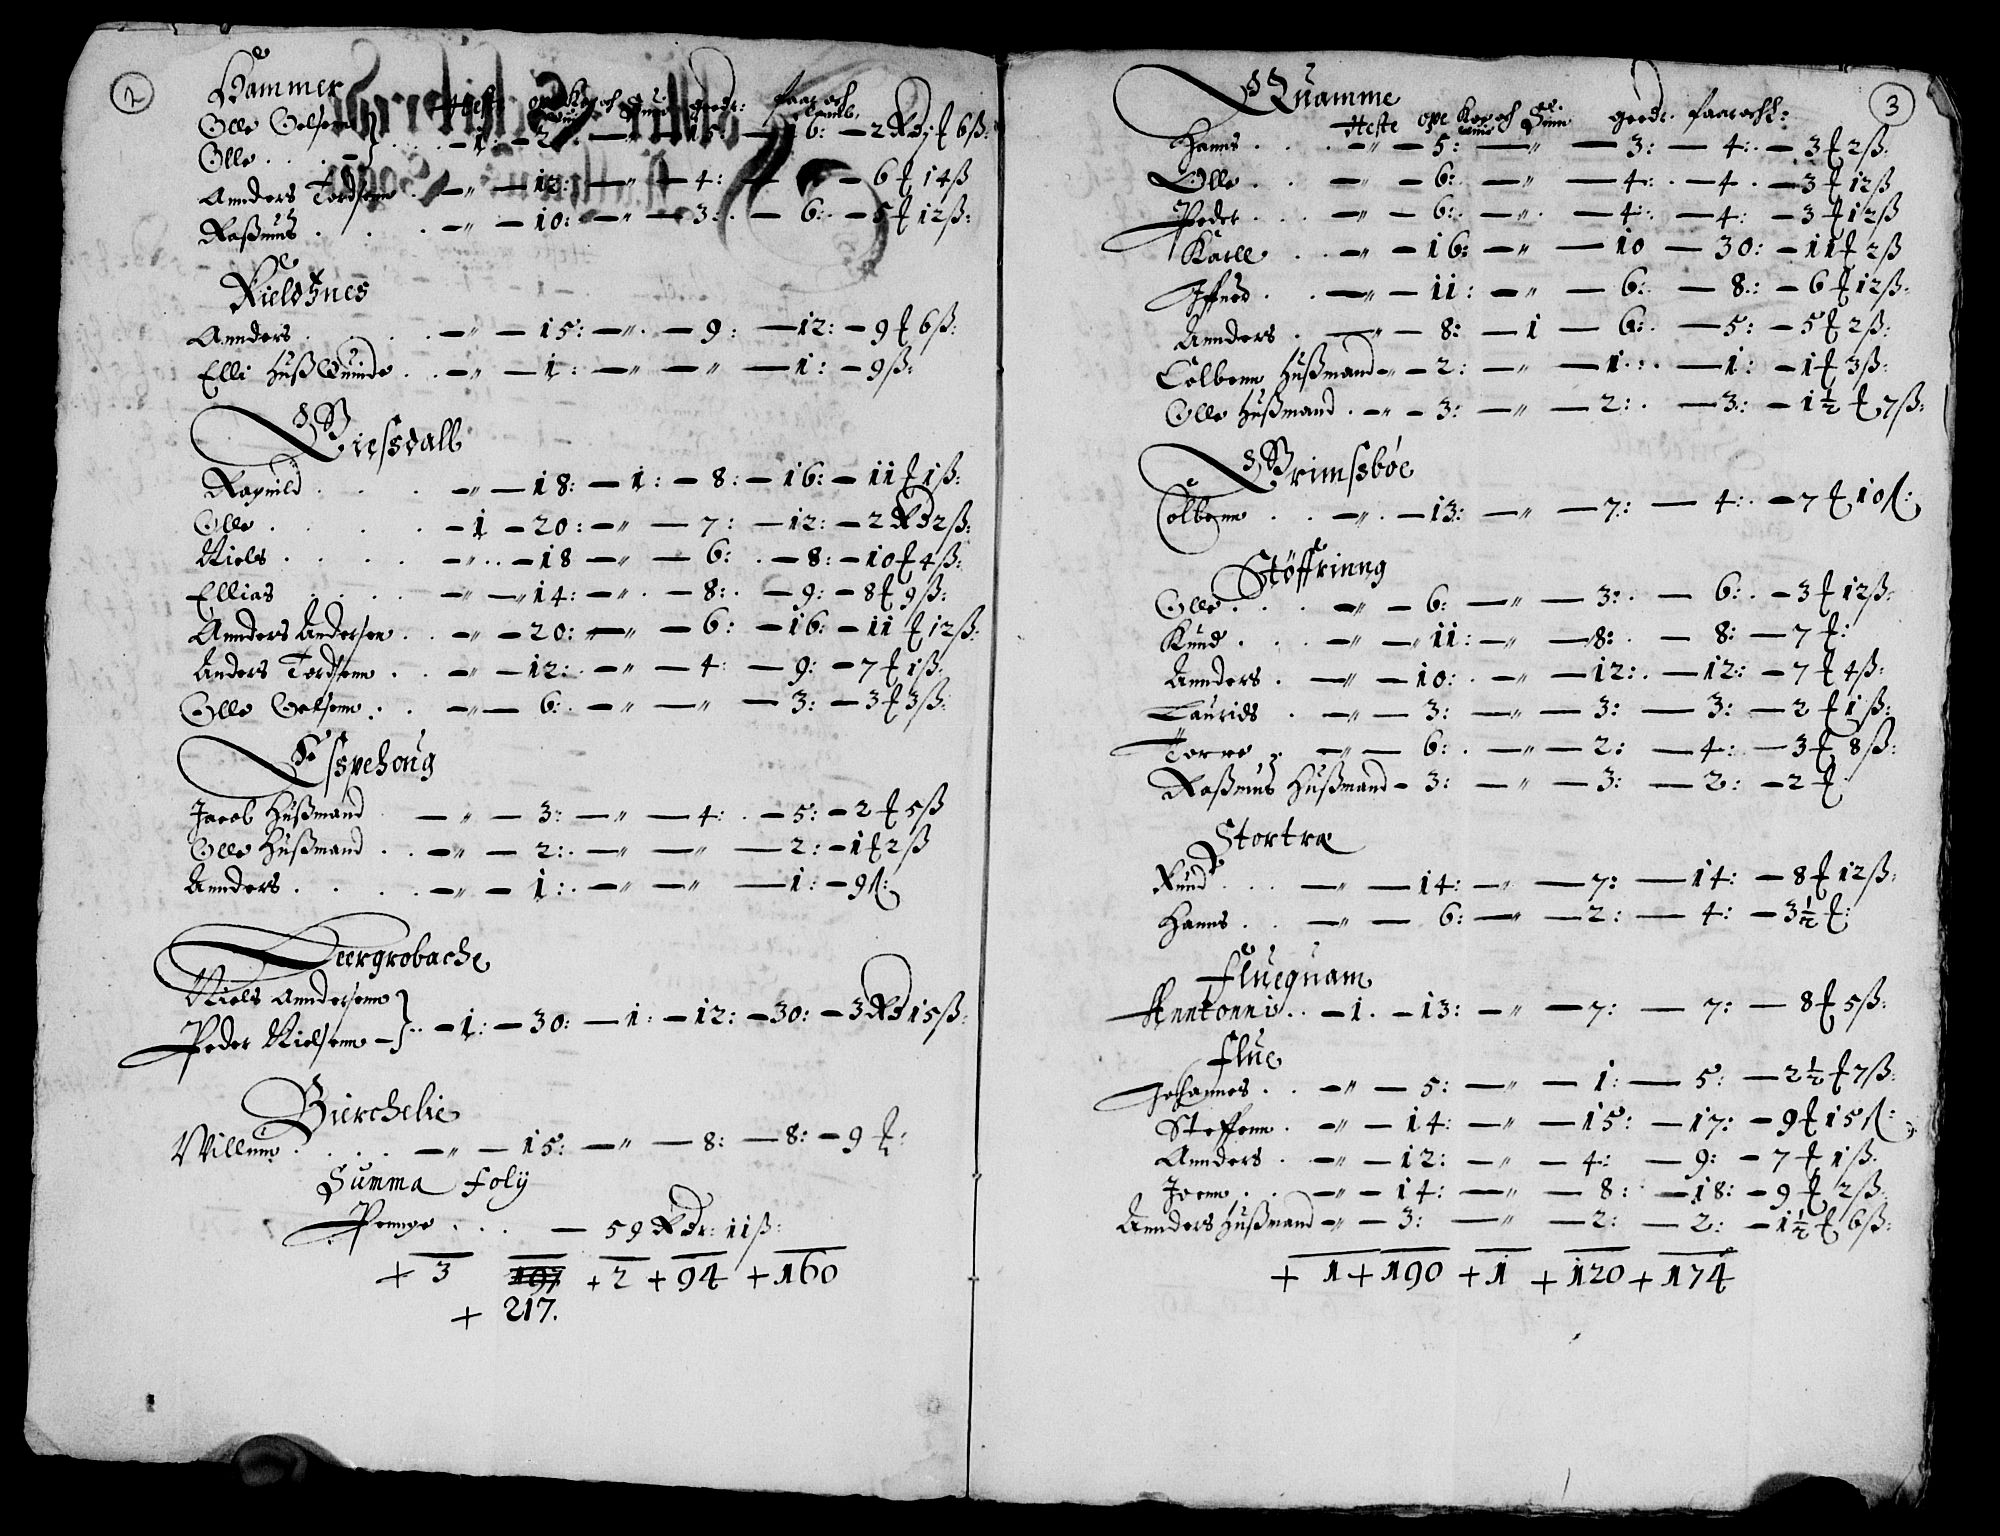 2
Hammer
Heste
Olle Oelsenn
Olle . . . } . . . — 1: — 2 — — 15: — 16: — 2 Rd 1 ₰ 6 ß:
Annders Tordsenn . — " — 12: — " — 4: — — 6 ₰ 14 ß
Raßmus . . . — " — 10: — " — 3: — 6: — 5 ₰ 12 ß:
Kieldsnes
Annders . . . — " — 15: — " — 9: — 12: — 9 ₰ 6 ß:
Elli Hußquinde . . — " — 1: — " — " — 1: — 9 ß:
Biessdall
Ragnild . . . — " — 18: — 1: — 8: — 16: — 11 ₰ 1 ß:
Olle . . . . — 1 — 20: — " — 7: — 12: — 2 Rd 2 ß:
Niels . . . . — " — 18 — " — 6: — 8: — 10 ₰ 4 ß:
Ellias . . . . — " — 14: — " — 8: — 9: — 8 ₰ 9 ß:
Annders Andersen . . — " — 20: — " — 6: — 16: — 11 ₰ 12 ß:
Anders Tordsenn . . — " — 12: — " — 4: — 9: — 7 ₰ 1 ß:
Olle Oelsenn . . — " — 6: — " — " — 3: — 3 ₰ 3 ß:
Esspehoug
Jacob Hußmand — " — 3: — " — 4: — 5: — 2 ₰ 5 ß
Olle Hußmand . . — " — 2: — " — " — 2: — 1 ₰ 2 ß
Annders . . . . — " — 1: — " — " — 1: — 9 ß:
Deergrobache
Niels Anndersenn
Peder Nielsenn — } . . — 1: — 30: — 1: — 12: — 30: — 3 Rd 15 ß:
Bierchelie
Willum . . . . — " — 15: — " — 8: — 8: — 9 ₰:
Summa Folij
Pennge . . . — 59 Rdr: 11 ß:
+ 3 197 + 2 + 94 + 160
+ 217.
3
Quamme
Heste
Hanns . . . — " — 5: — " — 3: — 4: — 3 ₰ 2 ß:
Olle . . — " — 6: — " — 4: — 4 . — 3 ₰ 12 ß
Peder . . . — " — 6: — " — 4: — 4: — 3 ₰ 12 ß
Karll . . — " — 16: — " — 10 — 30: — 11 ₰ 2 ß
Iffuer . . — " — 11: — " — 6: — 8: — 6 ₰ 12 ß:
Annders . — " — 8: — 1 — 6: — 5: — 5 ₰ 2 ß:
Colbenn Hußmand — " — 2: — " — 1: — 1: — 1 ₰ 3 ß:
Olle Hußmand . — " — 3: — " — 2: — 3: — 1½ ₰ 7 ß:
Brimssbøe
Colbenn . . — " — 13: — " — 7: — 4: — 7 ₰ 10 ß:
Støffrinng
Olle . . . — " — 6: — " — 3: — 6: — 3 ₰ 12 ß:
Knud . . . — " — 11: — " — 8: — 8: — 7 ₰:
Annders . — " — 10: — " — 12: — 12: — 7 ₰ 4 ß:
Laurids . — " — 3: — " — 3: — 3: — 2 ₰ 1 ß:
Torre . — " — 6: — " — 2: — 4: — 3 ₰ 8 ß:
Raßmus Hußmand — 3: — " — 3: — 2: — 2 ₰
Stortræ
Knud . . . — " — 14: — " — 7: — 14: — 8 ₰ 12 ß:
Hanns . . — " — 6: — " — 2: — 4: — 3½ ₰:
Fluequam
Anntonni . . — 1 . — 13: — " — 7: — 7: — 8 ₰ 5 ß:
Flue
Johannes . . — " — 5: — " — 1: — 5: — 2½ ₰ 7 ß:
Steffenn . — " — 14: — " — 15: — 17: — 9 ₰ 15 ß:
Annders . — " — 12: — " — 4: — 9: — 7 ₰ 1 ß:
Joenn . . — " — 14: — " — 8: — 18: — 9 ₰ 2 ß:
Annders Hußmand — " — 3: — " — 2: — 2: — 1½ ₰ 6 ß:
+ 1 + 190 + 1 + 120 + 174